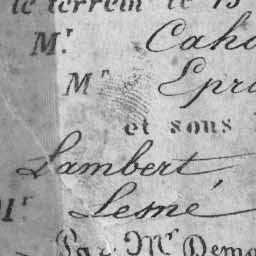 le terrein le 15
Mr. Caho
Mr Epr
et sous
Lambert
Mr Lesné
Par Mr Demo